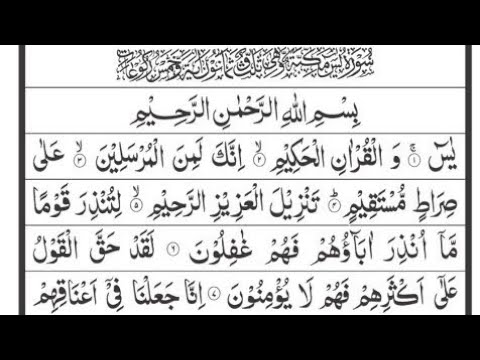 سُوْرَةُ يٰسٓ مَكِّيَّةٌ وَّهِيَ ثَلٰثٌ وَّثَمَانُوْنَ اٰيَةً وَّخَمْسُ رُكُوْعَاتٍ
بِسْمِ اللّٰهِ الرَّحْمٰنِ الرَّحِيْمِ
يٰسٓ ۝١ۚ وَ الْقُرْاٰنِ الْحَكِيْمِ ۝٢ۙ اِنَّكَ لَمِنَ الْمُرْسَلِيْنَ ۝٣ۙ عَلٰى
صِرَاطٍ مُّسْتَقِيْمٍ ۝٤ؕ تَنْزِيْلَ الْعَزِيْزِ الرَّحِيْمِ ۝٥ۙ لِتُنْذِرَ قَوْمًا
مَّاۤ اُنْذِرَ اٰبَآؤُهُمْ فَهُمْ غٰفِلُوْنَ ۝٦ لَقَدْ حَقَّ الْقَوْلُ
عَلٰۤى اَكْثَرِهِمْ فَهُمْ لَا يُؤْمِنُوْنَ ۝٧ اِنَّا جَعَلْنَا فِيْۤ اَعْنَاقِهِمْ